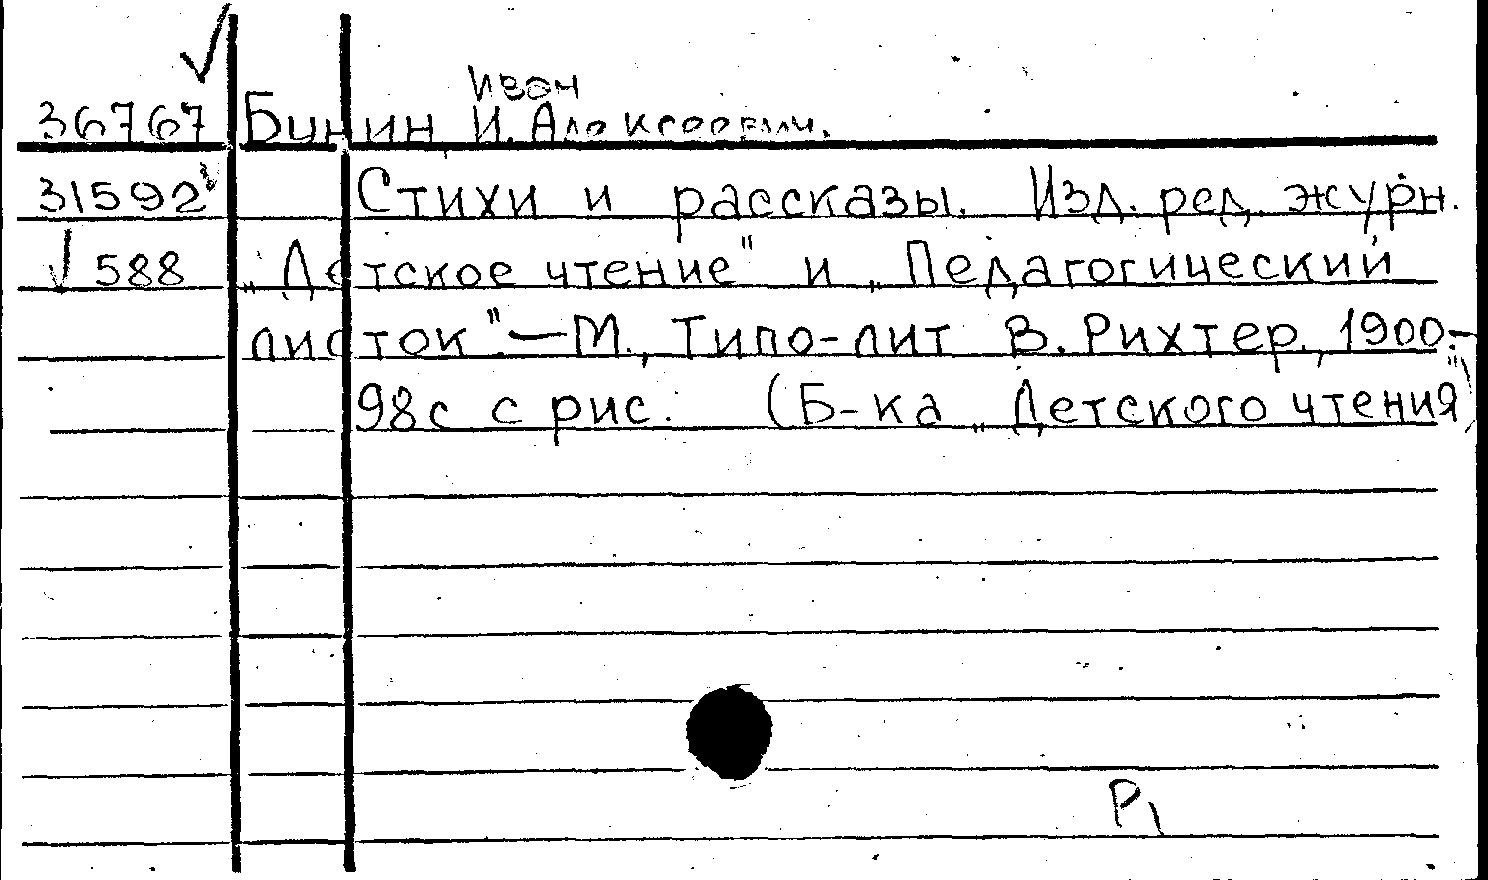 ✓
Иван
36767 Бунин И. Алексеевич.
31592 Стихи и рассказы. Изд. ред. журн.
✓ 588 „Детское чтение" и „Педагогический
листок". — М., Типо-лит В. Рихтер, 1900.-
98с с рис. (Б-ка „Детского чтения")
Р1